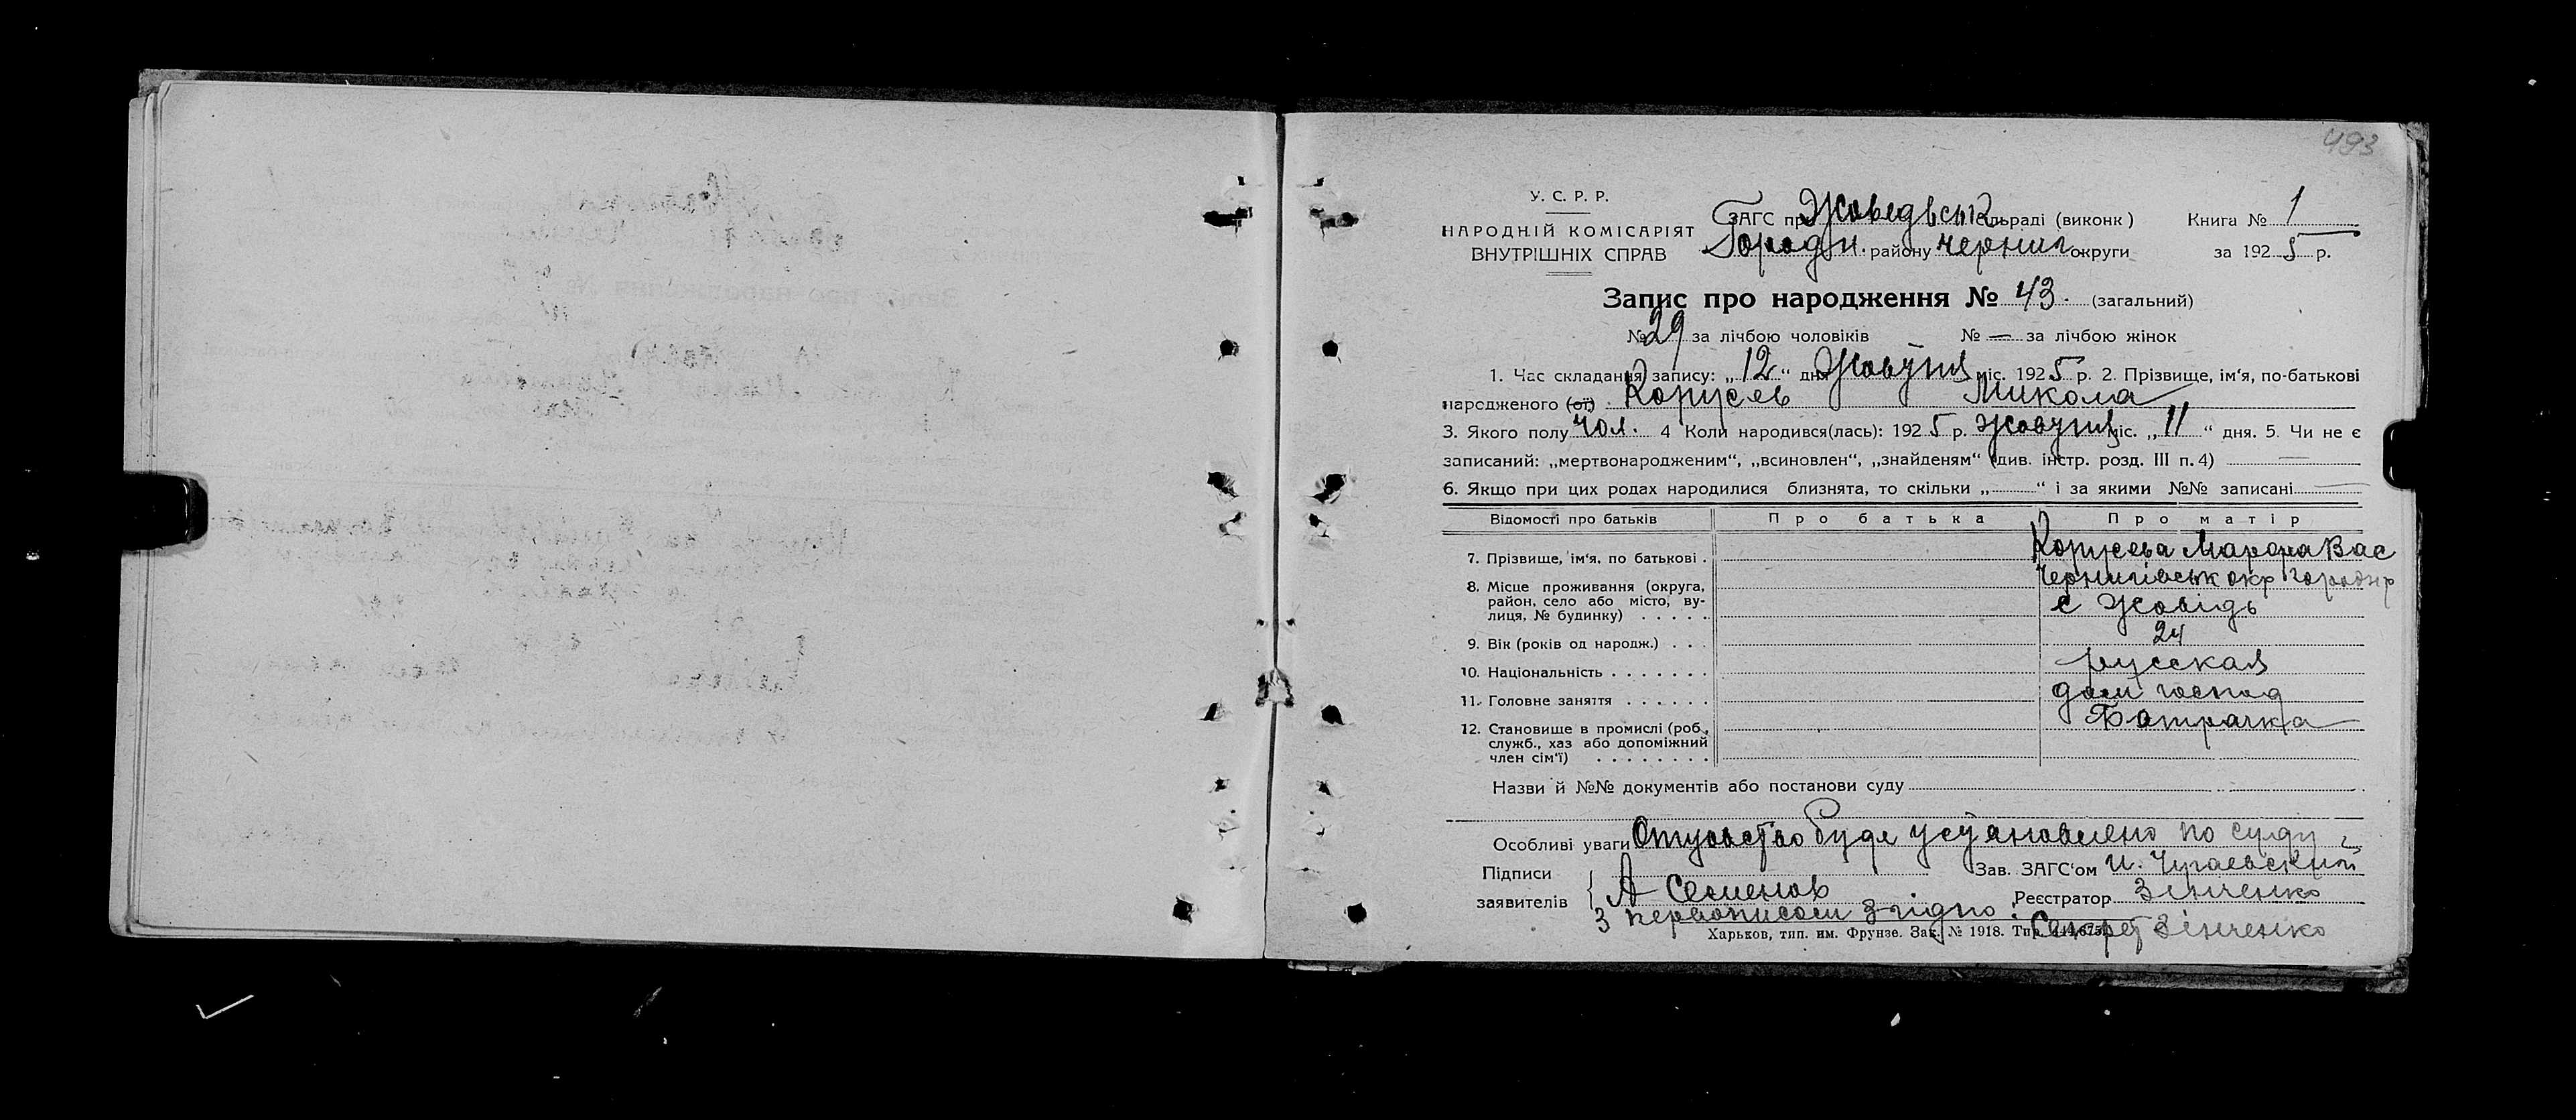 493
У. С. Р. Р.
НАРОДНІЙ КОМІСАРІЯТ
ВНУТРІШНІХ СПРАВ
ЗАГС при Жоведьськ сільраді (виконк)
Городн. району черниг округи
Книга № 1
за 1925 р.
Запис про народження № 43. (загальний)
№ 29 за лічбою чоловіків № — за лічбою жінок
1. Час складання запису: „12“ дня Жовтня міс. 1925 р. 2. Прізвище, ім'я, по-батькові
народженого (ої) Корусєв Микола
3. Якого полу чол. 4 Коли народився(лась): 1925 р. жовтня міс. „11“ дня. 5. Чи не є
записаний: „мертвонародженим“, „всиновлен“, „знайденям“ (див. інстр. розд. III п. 4) —
6. Якщо при цих родах народилися близнята, то скільки „ “ і за якими №№ записані —
Відомості про батьків Про батька Про матір
7. Прізвище, ім'я, по батькові . Корусева Вас
8. Місце проживання (округа, Чернигівськ окр городн р
район, село або місто, ву- с Жовідь
лиця, № будинку) . . . . .
9. Вік (років од народж.) . . . 24
10. Національність . . . . . . . русская
11. Головне заняття . . . . . . дом господ
12. Становище в промислі (роб., Батрачка
служб., хаз або допоміжний
член сім'ї) . . . . . . . .
Назви й №№ документів або постанови суду
Особливі уваги Отцовство буде установлено по суду
Підписи Зав. ЗАГС'ом И. Чугаевский
заявителів { А Семенов Реєстратор Зінченко
З первописом згідно: Секрет Зінченко
Харьков, тип. им. Фрунзе. Зак. № 1918. Тир.